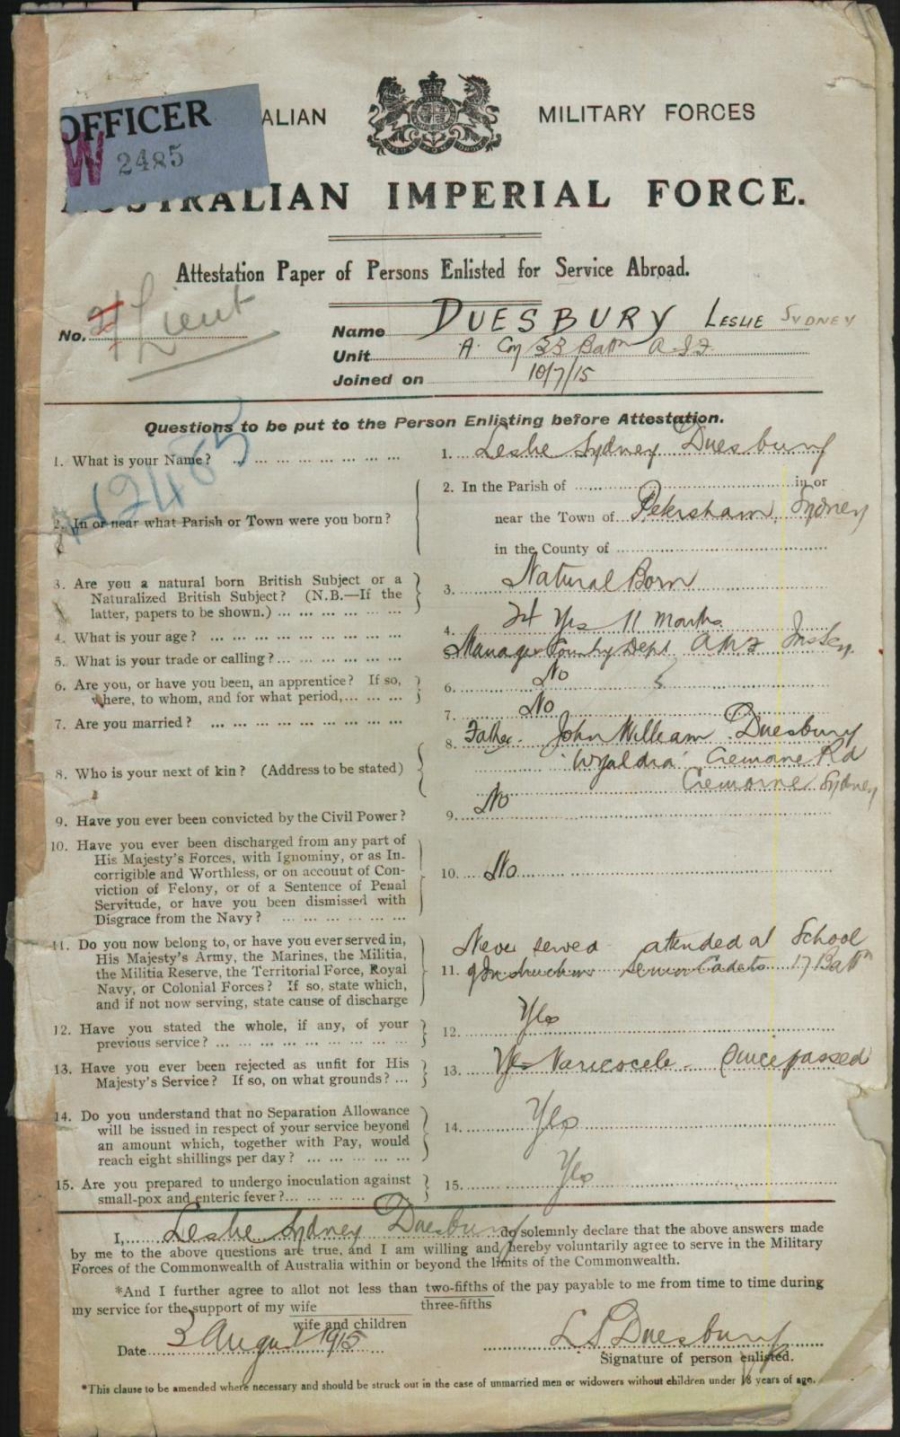 OFFICER
W 2485
ALIAN MILITARY FORCES
AUSTRALIAN IMPERIAL FORCE.
Attestation Paper of Persons Enlisted for Service Abroad.
No. Lieut
Name DUESBURY LESLIE SYDNEY
Unit A Coy 33 Battn A.I.F
Joined on 10/7/15
Questions to be put to the Person Enlisting before Attestation.
2485
1. What is your Name? 1. Leslie Sydney Duesbury
2. In or near what Parish or Town were you born?
2. In the Parish of in or
near the Town of Petersham, Sydney
in the County of
3. Are you a natural born British Subject or a
Naturalized British Subject? (N.B.—If the
latter, papers to be shown.)
3. Natural Born
4. What is your age? 4. 24 Yrs 11 Months
5. What is your trade or calling? 5. Manager Country Dept
6. Are you, or have you been, an apprentice? If so,
where, to whom, and for what period,
6. No
7. Are you married? 7. No
8. Who is your next of kin? (Address to be stated)
8. Father. John William Duesbury
Wyaldra Cremorne Rd
Cremorne Sydney
9. Have you ever been convicted by the Civil Power? 9. No
10. Have you ever been discharged from any part of
His Majesty's Forces, with Ignominy, or as In-
corrigible and Worthless, or on account of Con-
viction of Felony, or of a Sentence of Penal
Servitude, or have you been dismissed with
Disgrace from the Navy?
10. No
11. Do you now belong to, or have you ever served in,
His Majesty's Army, the Marines, the Militia,
the Militia Reserve, the Territorial Force, Royal
Navy, or Colonial Forces? If so, state which,
and if not now serving, state cause of discharge
Never served attended at School
11. of Instruction Senior Cadets 17 Battn
12. Have you stated the whole, if any, of your
previous service?
12. Yes
13. Have you ever been rejected as unfit for His
Majesty's Service? If so, on what grounds?
13. Yes Varicocele - Once passed
14. Do you understand that no Separation Allowance
will be issued in respect of your service beyond
an amount which, together with Pay, would
reach eight shillings per day?
14. Yes
15. Are you prepared to undergo inoculation against
small-pox and enteric fever?
15. Yes
I, Leslie Sydney Duesbury do solemnly declare that the above answers made
by me to the above questions are true, and I am willing and hereby voluntarily agree to serve in the Military
Forces of the Commonwealth of Australia within or beyond the limits of the Commonwealth.
*And I further agree to allot not less than two-fifths of the pay payable to me from time to time during
three-fifths
my service for the support of my wife
wife and children
Date 3 August 1915 L S Duesbury
Signature of person enlisted.
*This clause to be amended where necessary and should be struck out in the case of unmarried men or widowers without children under 18 years of age.